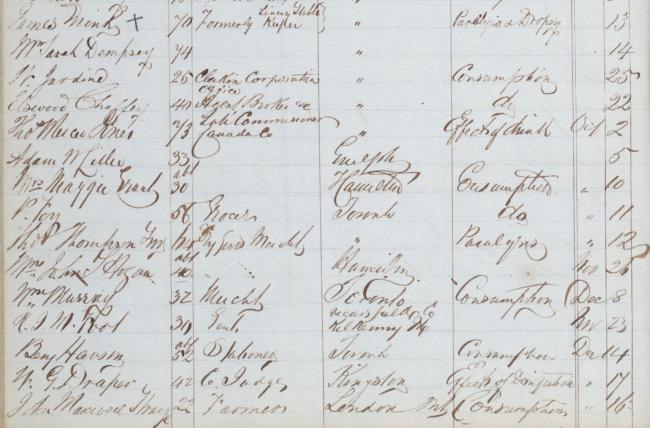 James Mink + 70 Formerly Livery Stable Keeper " Paralysis & Dropsy 13
Mrs Sarah Dempsey 74 " 14
W. Jardine 25 Clerk in Corporation office " Consumption 25
Elswood 40 Agent Broker &c " do 22
Thos Mercer Jones 73 Late Commissioner Canada Co " Effects of drink Oct 2
Adam 33 Guelph 5
Mrs Maggie Grant abt 30 Hamilton Consumption " 10
P. Foy 56 Grocer Toronto do " 11
Thos Thompson Dry Good Mercht " Paralysis " 12
Mrs John abt 40 Hamilton Nov 26
Wm Murray 32 Mercht Toronto Consumption Dec 8
R. J. M. 30 Gent Kilkenny Co Nov 23
Benj abt 52 Stationer Toronto Consumption Dec 14
W. G. Draper 42 Co. Judge Kingston Effects of Dissipation " 17
John Maxwell 22 Farmers London Consumption " 16